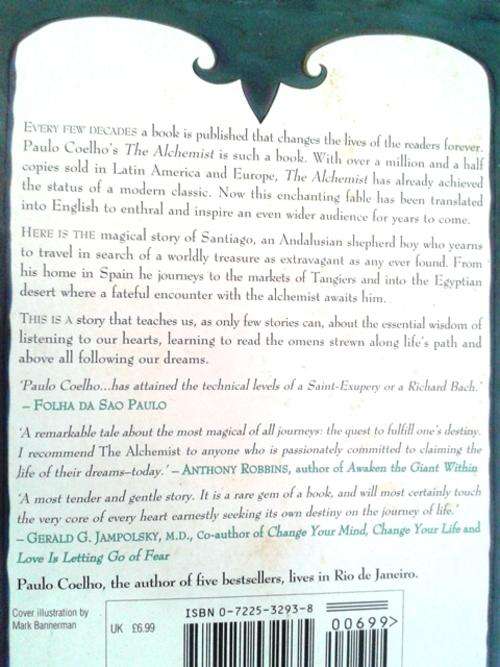 EVERY FEW DECADES a book is published that changes the lives of the readers forever.
Paulo Coelho's The Alchemist is such a book. With over a million and a half
copies sold in Latin America and Europe, The Alchemist has already achieved
the status of a modern classic. Now this enchanting fable has been translated
into English to enthral and inspire an even wider audience for years to come.
HERE IS THE magical story of Santiago, an Andalusian shepherd boy who yearns
to travel in search of a worldly treasure as extravagant as any ever found. From
his home in Spain he journeys to the markets of Tangiers and into the Egyptian
desert where a fateful encounter with the alchemist awaits him.
THIS IS A story that teaches us, as only few stories can, about the essential wisdom of
listening to our hearts, learning to read the omens strewn along life's path and
above all following our dreams.
'Paulo Coelho...has attained the technical levels of a Saint-Exupery or a Richard Bach.'
– FOLHA DA SAO PAULO
'A remarkable tale about the most magical of all journeys: the quest to fulfill one's destiny.
I recommend The Alchemist to anyone who is passionately committed to claiming the
life of their dreams–today.' – ANTHONY ROBBINS, author of Awaken the Giant Within
'A most tender and gentle story. It is a rare gem of a book, and will most certainly touch
the very core of every heart earnestly seeking its own destiny on the journey of life.'
– GERALD G. JAMPOLSKY, M.D., Co-author of Change Your Mind, Change Your Life and
Love Is Letting Go of Fear
Paulo Coelho, the author of five bestsellers, lives in Rio de Janeiro.
Cover illustration by
Mark Bannerman
UK £6.99
ISBN 0-7225-3293-8
00699>